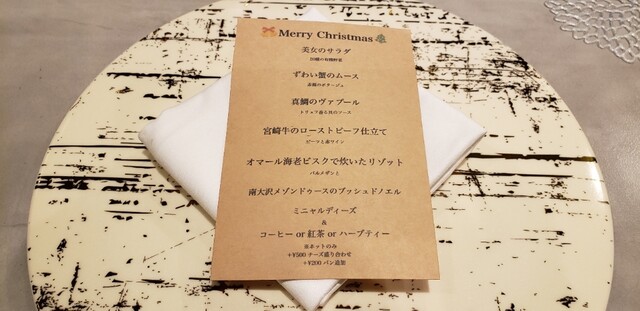 Merry Christmas
美女のサラダ
20種の有機野菜
ずわい蟹のムース
真鯛のヴァプール
トリュフ香る貝のソース
宮崎牛のローストビーフ仕立て
ビーツと赤ワイン
オマール海老ビスクで炊いたリゾット
パルメザンと
南大沢メゾンドゥースのブッシュドノエル
ミニャルディーズ
&
コーヒー or 紅茶 or ハーブティー
※ネットのみ
+¥500 チーズ盛り合わせ
+¥200 パン追加